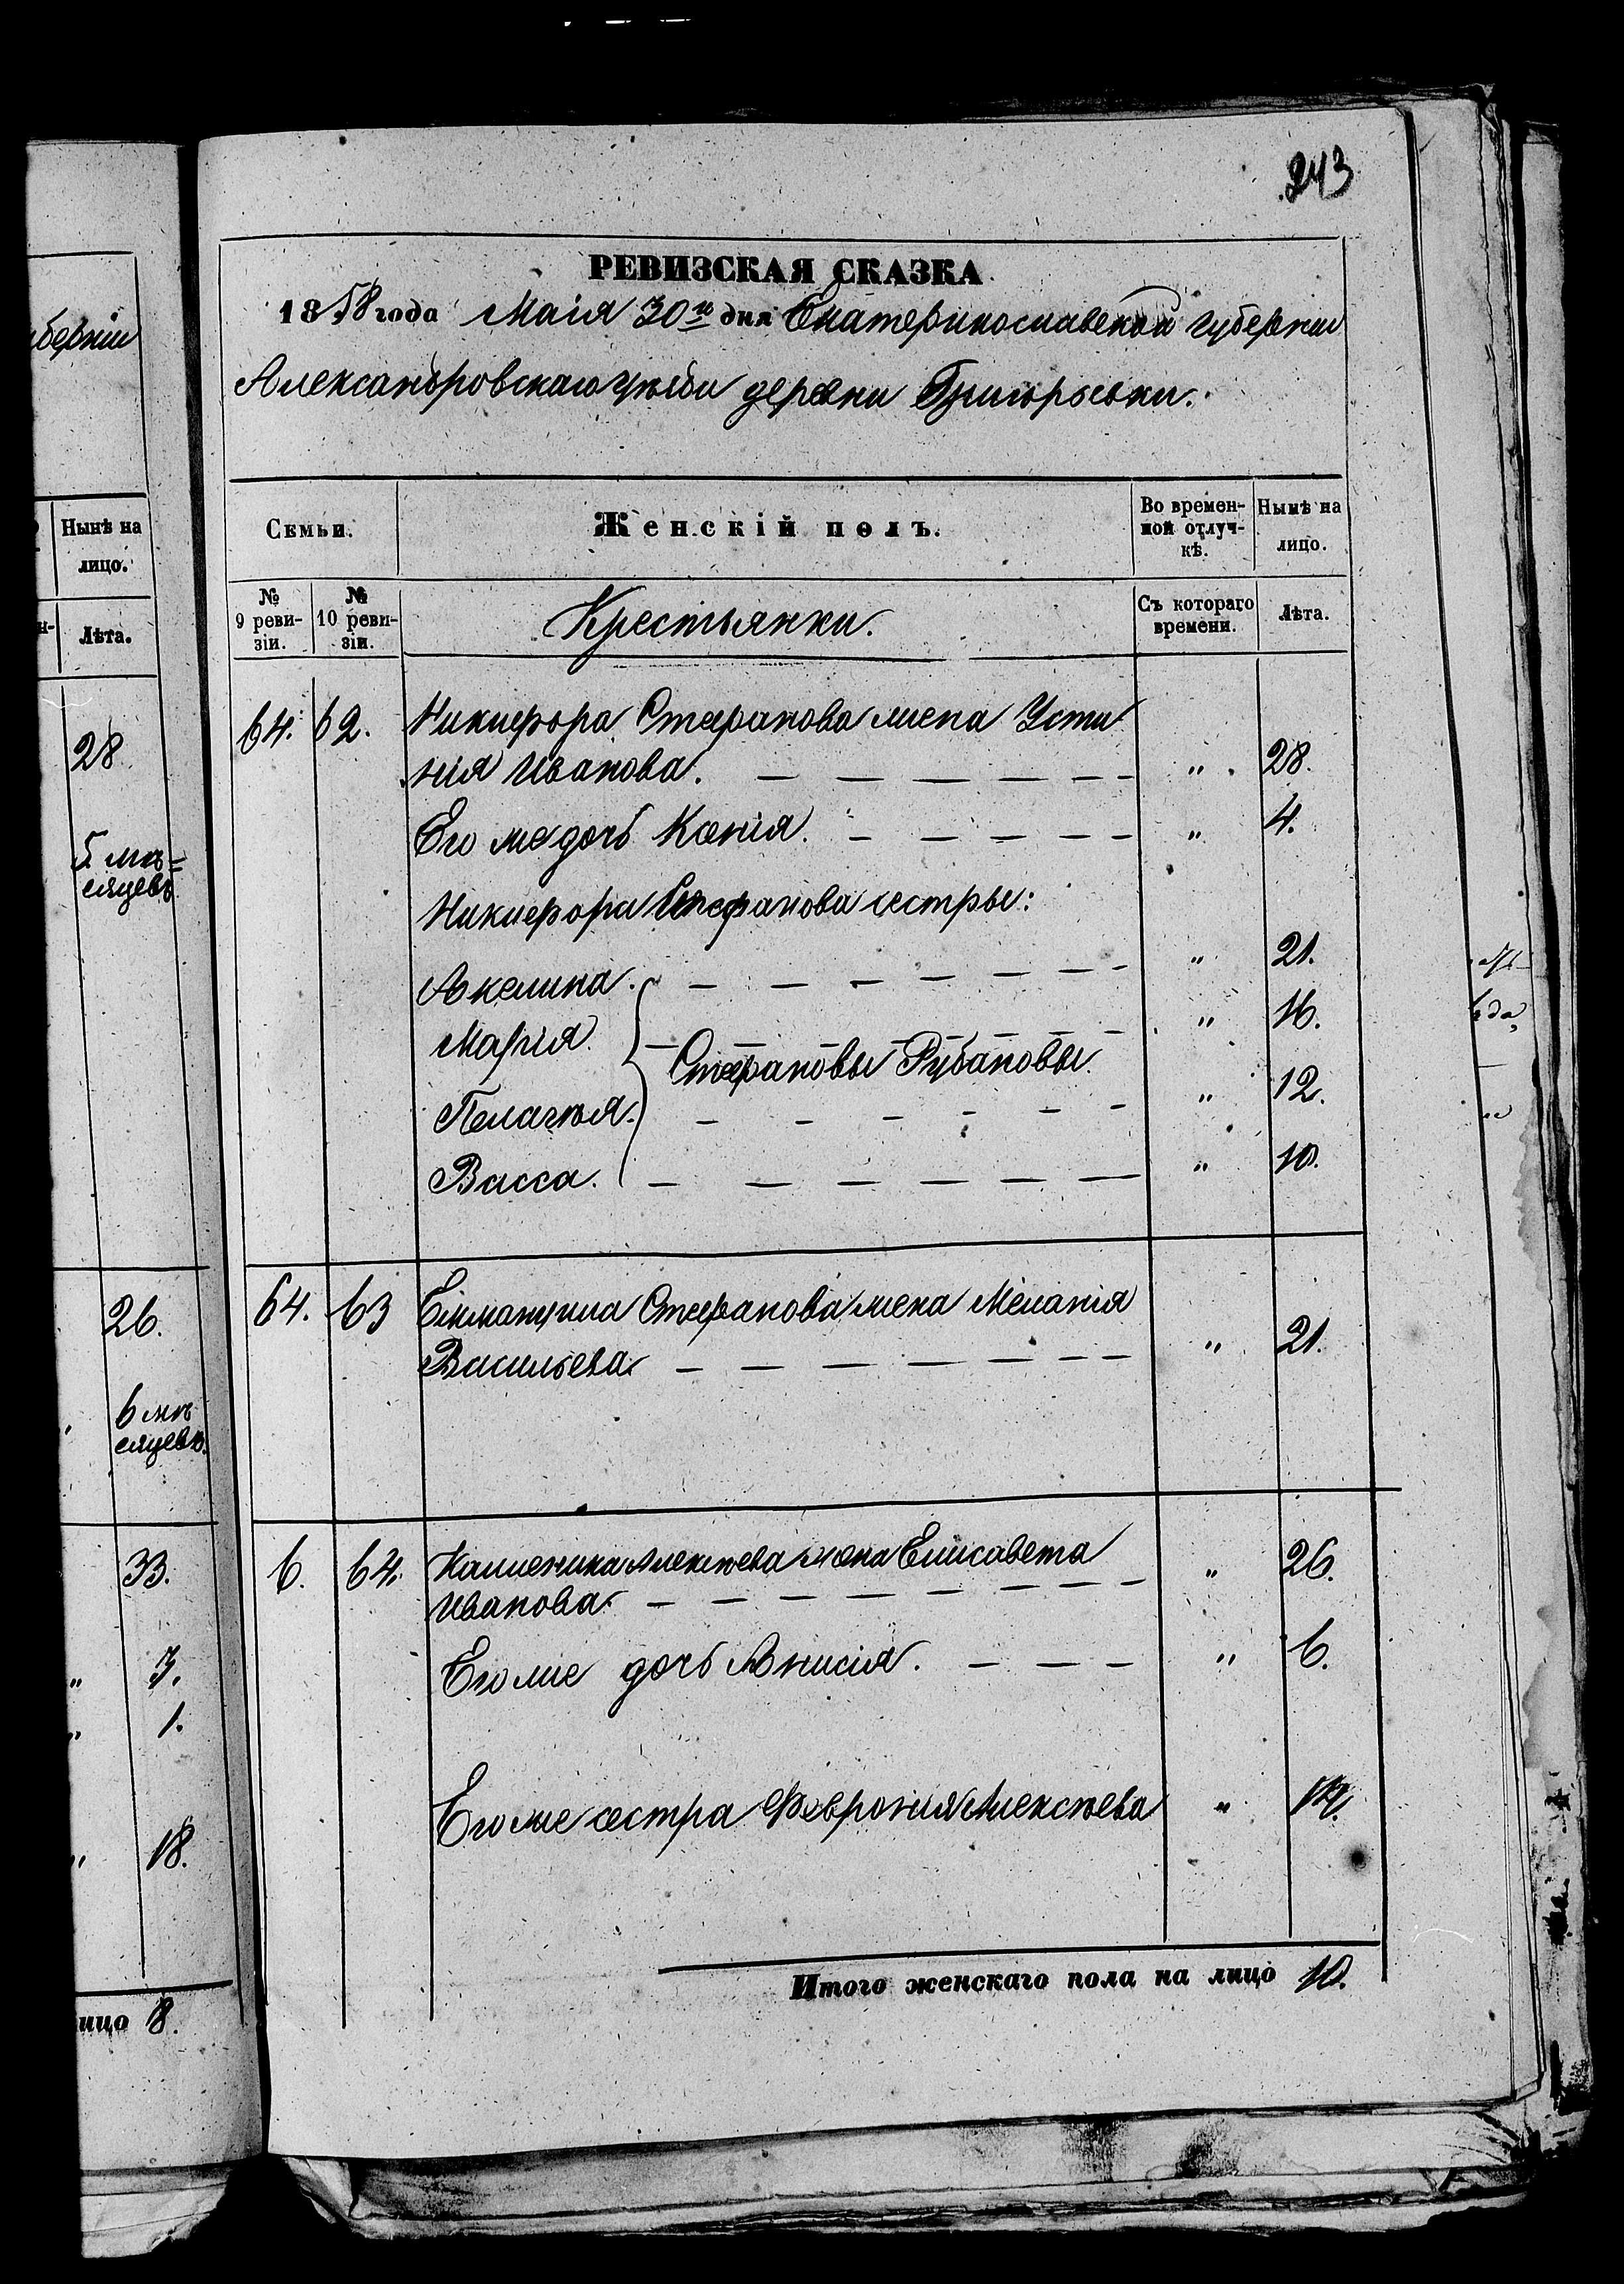 243
берніи
Нынѣ на
лицо.
Лѣта.
28
5. мѣ=
сяцевъ
26.
6 мѣ
сяцевъ.
33.
" 3.
" 1.
" 18.
лицо 8.
РЕВИЗСКАЯ СКАЗКА
1858 года Маія 30го дня Екатеринославской губерніи
Александровскаго уѣзда деревни Григорьевки.
Семьи. Женскій полъ. Во времен-ной отлуч-кѣ. Нынѣ на лицо.
№ 9 реви-зіи. № 10 реви-зіи. Крестьянки. Съ котораго времени. Лѣта.
64. 62. Никифора Стефанова жена Усти
нія Иванова. — — — — — " 28.
Его же дочь Ксенія. — — — — — " 4.
Никифора Стефанова сестры:
Акелина. — — — — — — " 21.
Марія. — — — — — — " 16.
Стефановы Рубановы.
Пелагѣя. — — — — — — " 12.
Васса. — — — — — — " 10.
64. 63 Стефанова жена Меланія
Васильева. — — — — — — " 21.
6. 64. Алексѣева жена Елисавета " 26.
Иванова. — — — — — —
Его же дочь Анисія. — — — " 6.
Его же сестра Феврониа Алексѣева "
Итого женскаго пола на лицо 10.